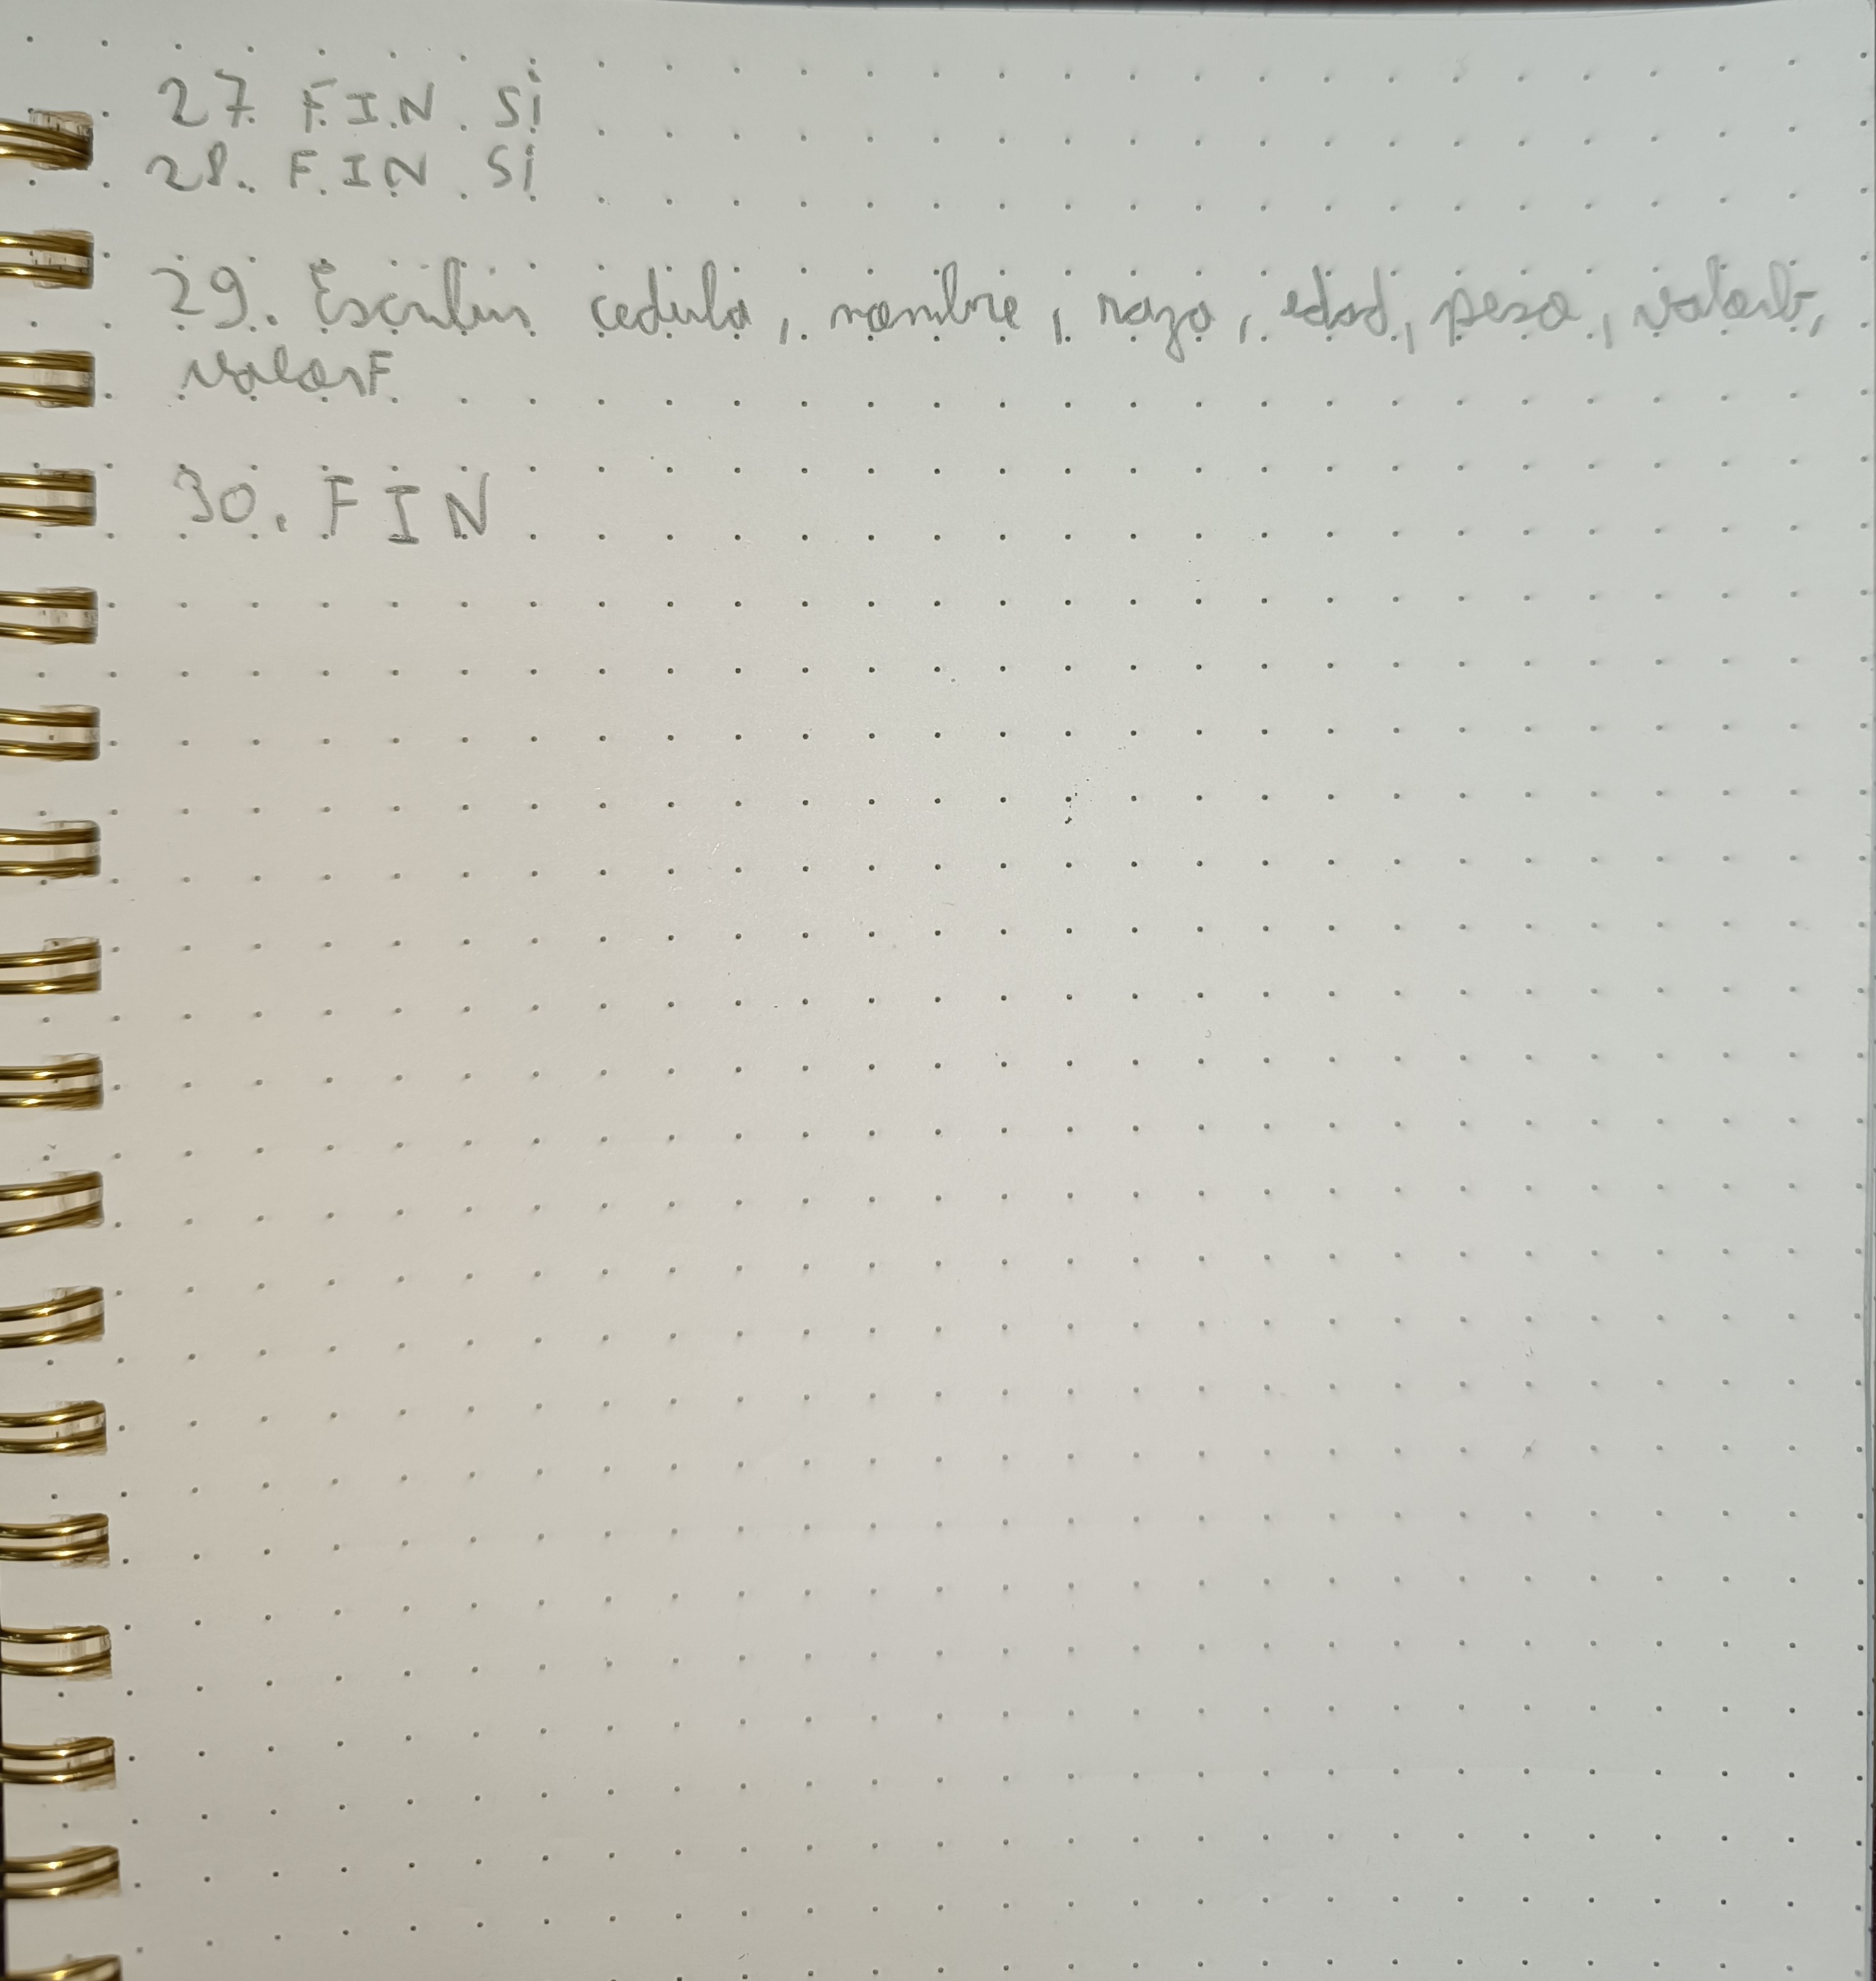 27. FIN SI
28. FIN SI
29. Escribir cedula, nombre, raza, edad, peso, valorb,
valorF
30. FIN